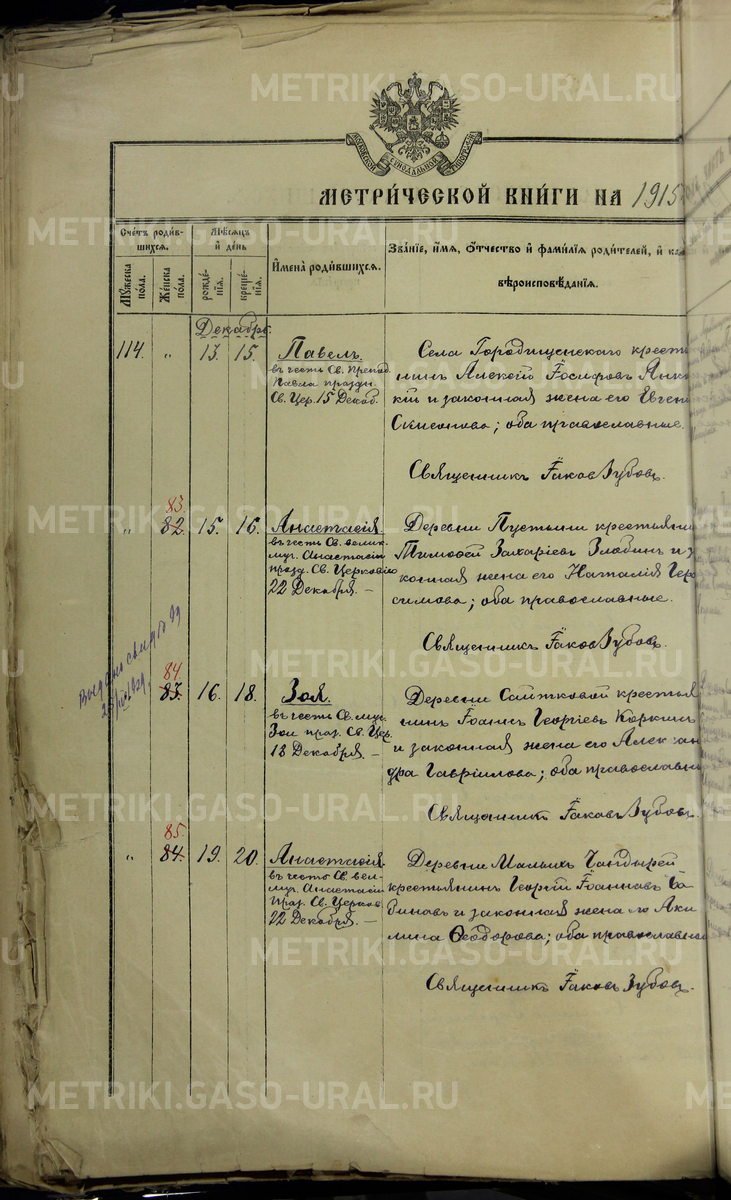 METRIKI.GASO-URAL.RU
МОСКОВСКОЙ СѴНОДАЛЬНОЙ ТИПОГРАФІИ
МЕТРИ́ЧЕСКОЙ КНИ́ГИ НА 1915
Сче́тъ роди́в-
шихся.
Му́жеска
по́ла.
Же́нска
по́ла.
Мѣ́сяцъ
и҆ де́нь
рожде́-
нїѧ.
креще́-
нїѧ.
И҆мена̀ роди́вшихся.
Зва́нїе, и҆́мѧ, ѻ҆́тчество и҆ фами́лїѧ роди́телей, и҆ ка
вѣроисповѣ́данїѧ.
Декабрь
114. " 13. 15. Павелъ.
въ честь Св. Препод.
Павла праздн.
Св. Цер. 15 Декаб.
Села Городищенскаго крест
нинъ Алексій Іосифовъ
кій и законная жена его Евген
Симонова; оба православные.
Священникъ Іаковъ Зубовъ.
83.
" 82. 15. 16. Анастасія.
въ честь Св. велик.
муч. Анастасіи
празд. Св. Церковію
22 Декабря. —
Деревни Пустыни крестьяни
Тимоѳей Захаріевъ Злобинъ и з
конная жена его Наталія Гера
симова; оба православные.
Священникъ Іаковъ Зубовъ.
84.
83. 16. 18. Зоя.
въ честь Св. муч.
Зои праз. Св. Цер.
18 Декабря. —
Деревни Сайтковой крестья
нинъ Іоаннъ Георгіевъ Коркинъ
и законная жена его Алексан
дра Гавріилова; оба православны
Священникъ Іаковъ Зубовъ.
85.
" 84. 19. 20. Анастасія
въ честь Св. вел-
муч. Анастасіи
Праз. Св. Церков.
22 Декабря. —
Деревни Малыхъ Чандырей
крестьянинъ Георгій Іоанновъ Ба
биновъ и законная жена его Аки
лина Ѳеодорова; оба православны
Священникъ Іаковъ Зубовъ.